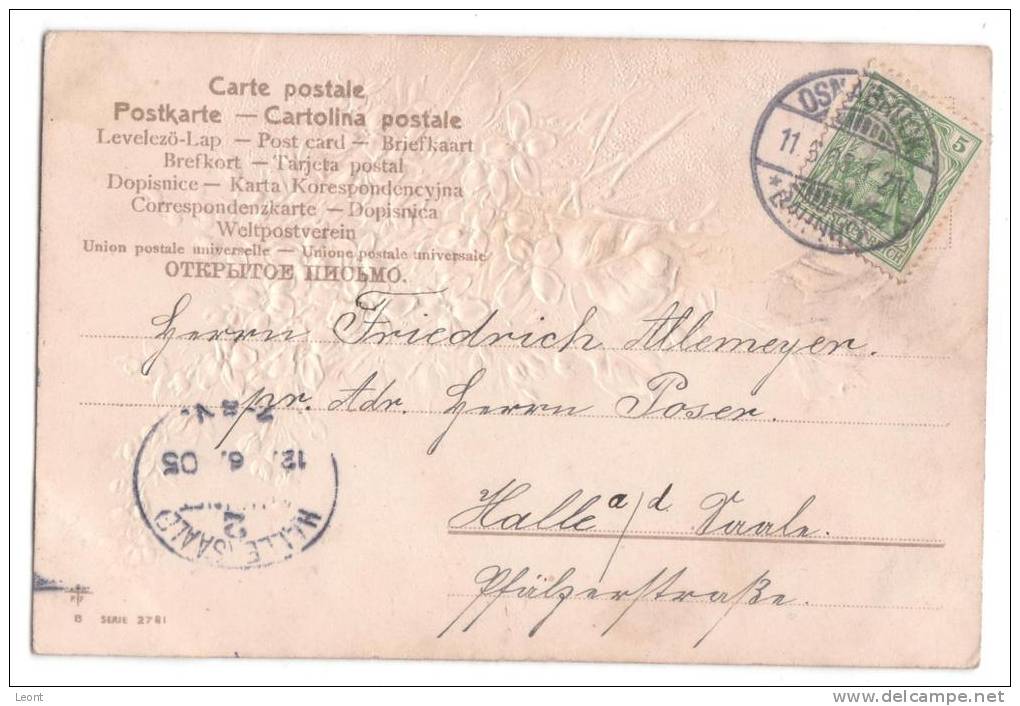 Carte postale
Postkarte — Cartolina postale
Levelezö-Lap — Post card — Briefkaart
Brefkort — Tarjeta postal
Dopisnice — Karta Korespondencyjna
Correspondenzkarte — Dopisnica
Weltpostverein
Union postale universelle — Unione postale universale
ОТКРЫТОЕ ПИСЬМО.
OSNABRÜCK
5
Herrn Friedrich Allemeyer.
pr. Adr. Herrn Poser.
Halle a/d. Saale.
Pfälzerstraße.
12. 6. 05
HALLE (SAALE)
2
B SERIE 2781
Leont
delcampe.net